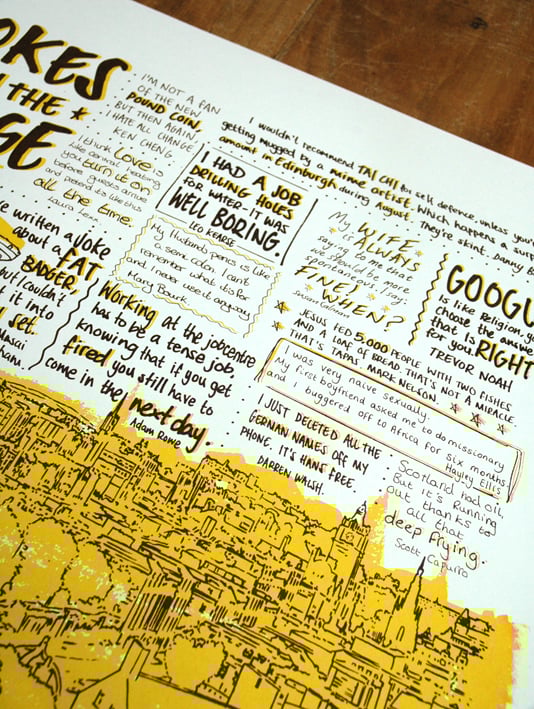 OKES
THE
GE
I'M NOT A FAN
OF THE NEW
POUND COIN,
BUT THEN AGAIN,
I HATE ALL CHANGE
KEN CHENG.
I think Love is
like central heating
you turn it on
before guests arrive
and pretend it's like this
all the time
Laura Lexx
I wouldn't recommend TAI CHI for self defence, unless you're
getting mugged by a mime artist. Which happens a surp
amount in Edinburgh during August. They're skint. Danny B
I HAD A JOB
DRILLING HOLES
FOR WATER-IT WAS
WELL BORING.
LEO KEARSE
My Husband's penis is like
a semi colon. I can't
remember what it's for
and I never use it anyway
Mary Bourke
My WIFE
is ALWAYS
saying to me that
we should be more
spontaneous. I say:
FINE!
WHEN?
GOOGL
is like Religion yo
choose the answe
that is RIGHT
for you.
TREVOR NOAH
JESUS FED 5,000 PEOPLE WITH TWO FISHES
AND A LOAF OF BREAD. THAT'S NOT A MIRACLE
THAT'S TAPAS. MARK NELSON
e written a joke
about a FAT
BADGER
but I couldn't
it into
set.
Masai
ham.
Working at the jobcentre
has to be a tense job,
knowing that if you get
fired you still have to
come in the next day.
Adam Rowe
I was very naive sexually.
my first boyfriend asked me to do missionary
and I buggered off to Africa for six months.
Hayley Ellis
I JUST DELETED ALL THE
GERMAN NAMES OFF MY
PHONE, IT'S HANS FREE.
DARREN WALSH.
Scotland had oil,
But it's running
out thanks to
all that
deep frying.
Scott Capurro